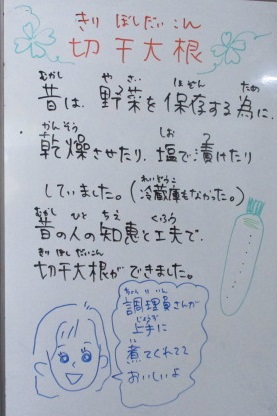 きり ぼしだい こん
切干大根
むかし や さい ほ ぞん ため
昔は、野菜を保存する為に、
かんそう しお つ
乾燥させたり、塩で漬けたり
れいぞうこ
していました。(冷蔵庫もなかった。)
むかし ひと ちえ くふう
昔の人の知恵と工夫で、
きり ぼし だいこん
切干大根ができました。
ちょうりいん
調理員さんが
じょうず
上手に
に
煮てくれてて
おいしいよ